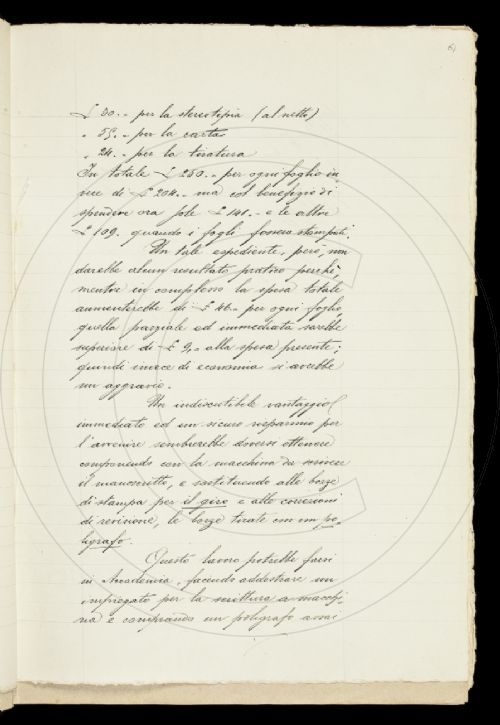 6)
£ 30.- per la stereotipia (al netto)
" 55.- per la carta
" 24.- per la tiratura
In totale £ 250.- per ogni foglio in-
vece di £ 204.- ma col benefizio di
spendere ora sole £ 141.- e le altre
£ 109. quando i fogli fossero stampati.
Un tale espediente, però, non
darebbe alcun resultato pratico perchè,
mentre in complesso la spesa totale
aumenterebbe di £ 46.- per ogni foglio,
quella parziale ed immediata sarebbe
superiore di £ 9,- alla spesa presente;
quindi invece di economia si avrebbe
un aggravio.
Un indiscutibile vantaggio
immediato ed un sicuro risparmio per
l'avvenire sembrerebbe doversi ottenere
componendo con la macchina da scrivere
il manoscritto, e sostituendo alle bozze
di stampa per il giro e alle correzioni
di revisione, le bozze tirate con un po-
ligrafo.
Questo lavoro potrebbe farsi
in Accademia, facendo addestrare un
impiegato per la scrittura a macchi-
na e comprando un poligrafo assai